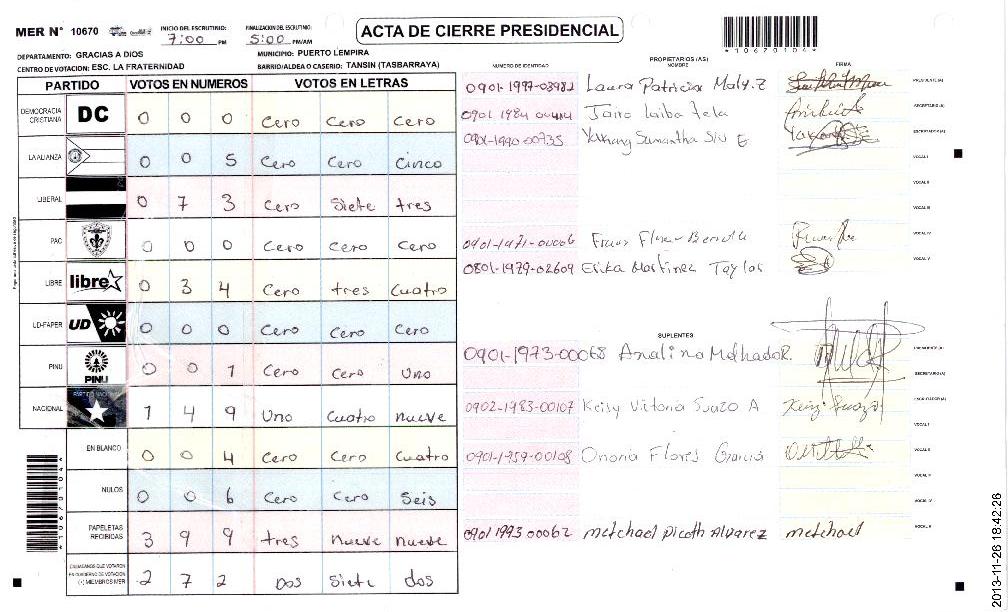 MER N° 10670
INICIO DEL ESCRUTINIO: 7:00 PM
FINALIZACION DEL ESCRUTINIO: 5:00 PM/AM
ACTA DE CIERRE PRESIDENCIAL
*10670104*
DEPARTAMENTO: GRACIAS A DIOS
MUNICIPIO: PUERTO LEMPIRA
CENTRO DE VOTACION: ESC. LA FRATERNIDAD
BARRIO/ALDEA O CASERIO: TANSIN (TASBARRAYA)
PARTIDO VOTOS EN NUMEROS VOTOS EN LETRAS
DEMOCRACIA CRISTIANA DC 0 0 0 Cero Cero Cero
LA ALIANZA 0 0 5 Cero Cero Cinco
LIBERAL 0 7 3 Cero Siete tres
PAC 0 0 0 Cero Cero Cero
LIBRE libre 0 3 4 Cero tres Cuatro
UD-FAPER UD 0 0 0 Cero Cero Cero
PINU PINU 0 0 1 Cero Cero Uno
NACIONAL 1 4 9 Uno Cuatro nueve
EN BLANCO 0 0 4 Cero Cero Cuatro
NULOS 0 0 6 Cero Cero Seis
PAPELETAS RECIBIDAS 3 9 9 tres nueve nueve
CIUDADANOS QUE VOTARON EN CUADERNO DE VOTACION (+) MIEMBROS MER 2 7 2 Dos Siete dos
*10670104*
NUMERO DE IDENTIDAD PROPIETARIOS (AS) NOMBRE FIRMA
0901-1997-03982 Laura Patricia PRESIDENTE(A)
0901 1984 00414 Jairo SECRETARIO(A)
0901-1990-00735 Samantha ESCRUTADOR(A)
VOCAL I
VOCAL II
VOCAL III
0901-1971-00006 VOCAL IV
0801-1979-02609 Erika Martinez Taylor VOCAL V
SUPLENTES
0901-1973-00068 Analina PRESIDENTE(A)
SECRETARIO(A)
0902-1983-00107 Keisy Victoria Suazo A ESCRUTADOR(A)
VOCAL I
0901-1959-00108 Flores Garcia VOCAL II
VOCAL IV
0901 1993 00062 metchael Alvarez metchael VOCAL V
2013-11-26 18:42:26